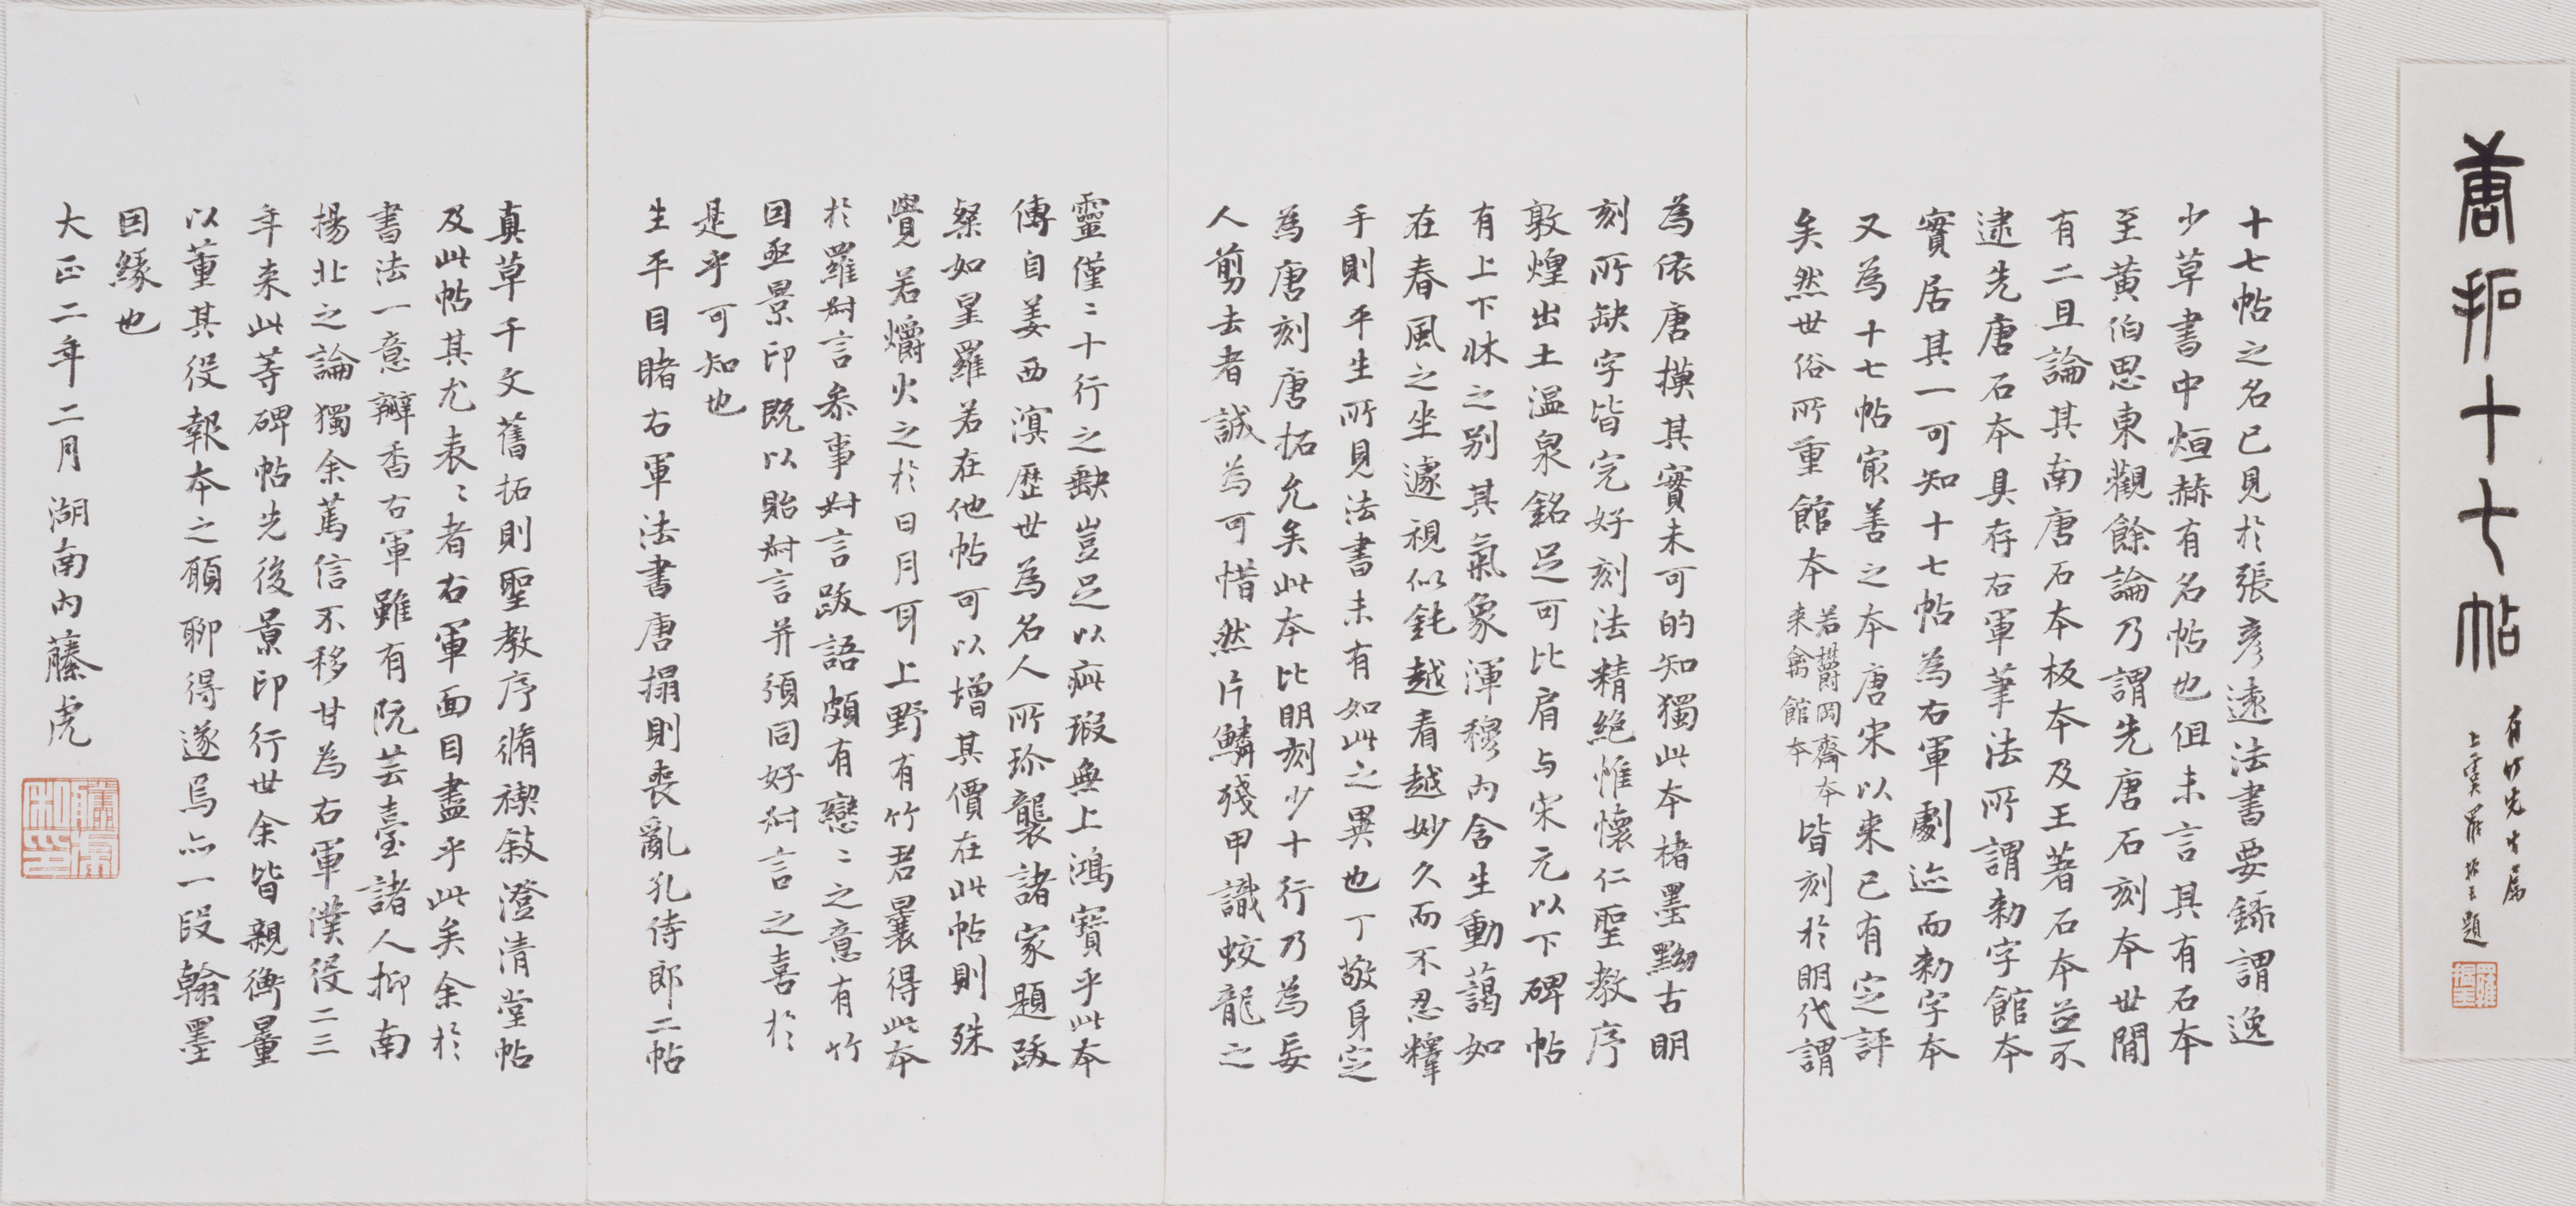 唐拓十七帖
有竹先生属
上虞羅振玉題
羅振玉
十七帖之名已見於張彦遠法書要録謂逸
少草書中烜赫有名帖也但未言其有石本
至黄伯思東觀餘論乃謂先唐石刻本世間
有二且論其南唐石本板本及王著石本並不
逮先唐石本具存右軍筆法所謂勅字館本
實居其一可知十七帖為右軍劇迹而勅字本
又為十七帖㝡善之本唐宋以来已有定評
矣然世俗所重館本
若欝岡齋本
来禽館本
皆刻於明代謂
為依唐摸其實未可的知獨此本楮墨黝古明
刻所缺字皆完好刻法精絶惟懷仁聖教序
敦煌出土温泉銘足可比肩与宋元以下碑帖
有上下牀之别其氣象渾穆内含生動藹如
在春風之坐遽視似鈍越看越妙久而不忍釋
手則平生所見法書未有如此之異也丁敬身定
為唐刻唐拓允矣此本比明刻少十行乃為妄
人剪去者誠為可惜然片鱗殘甲識蛟龍之
靈僅〻十行之缺豈足以疵瑕無上鴻寶乎此本
傳自姜西溟歴世為名人所珍襲諸家題跋
粲如星羅若在他帖可以增其價在此帖則殊
覺若爝火之於日月耳上野有竹君曩得此本
於羅尗言叅事尗言跋語頗有戀〻之意有竹
因亟景印既以貽尗言并須同好尗言之喜於
是乎可知也
生平目睹右軍法書唐搨則喪亂孔侍郎二帖
真草千文舊拓則聖教序脩禊敍澄清堂帖
及此帖其尤表〻者右軍面目盡乎此矣余於
書法一意瓣香右軍雖有阮芸臺諸人抑南
揚北之論獨余篤信不移甘為右軍濮役二三
年来此等碑帖先後景印行世余皆親衡量
以董其役報本之願聊得遂焉亦一段翰墨
因縁也
大正二年二月湖南内藤虎